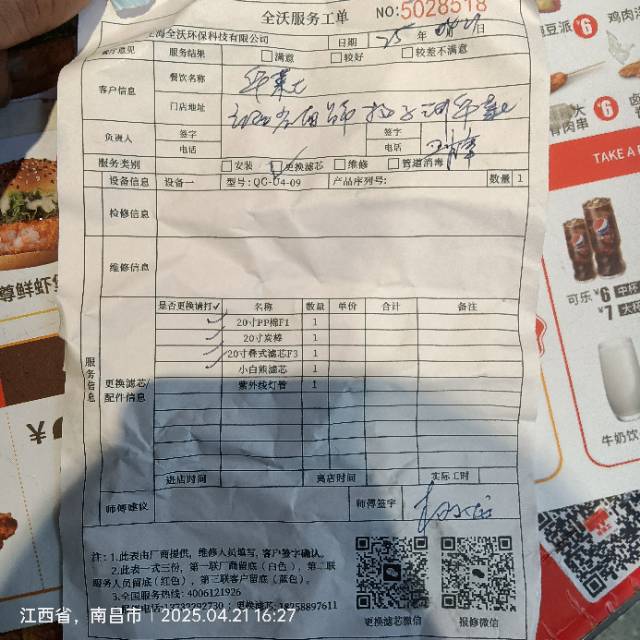 全沃服务工单
NO:5028518
上海全沃环保科技有限公司
日期 25 年
客户意见 服务结果 □满意 □较好 □较差不满意
客户信息 餐饮名称 华莱士
门店地址
负责人 签字 签字
电话 电话
服务类别 □安装 □更换滤芯 □维修 □管道消毒
设备信息 设备一 型号:QG-U4-09 产品序列号: 数量 1
检修信息
维修信息
服务信息
更换滤芯/配件信息
是否更换请打✓ 名称 数量 单价 合计 备注
✓ 20寸PP棉F1 1
✓ 20寸炭棒 1
✓ 20寸叠式滤芯F3 1
小白熊滤芯 1
紫外线灯管 1
进店时间 离店时间 实际工时
师傅建议 师傅签字
注:1.此表由厂商提供,维修人员填写,客户签字确认。
2.此表一式三份,第一联厂商留底(白色),第二联
服务人员留底(红色),第三联客户留底(蓝色)。
3.全国服务热线:4006121926
更换滤芯:18258897611
更换滤芯微信 报修微信
TAKE A
可乐 ¥6 中杯
¥7 大杯
牛奶饮
¥6
鸡肉
肉串
¥6
江西省,南昌市 | 2025.04.21 16:27